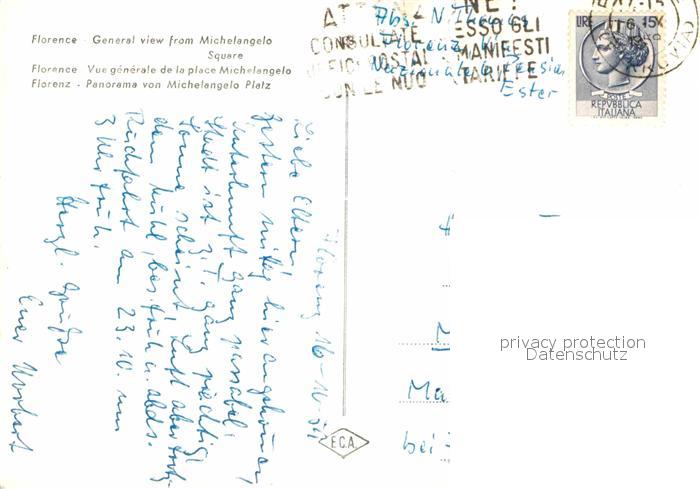 Florence - General view from Michelangelo
Square
Florence - Vue générale de la place Michelangelo
Florenz - Panorama von Michelangelo Platz
Abs. N.
Florenz
Ester
CONSULTATE ESSO GLI
UFFICI POSTALI MANIFESTI
CON LE NUO TARIFFE
LIRE 15
POSTE
REPVBBLICA
ITALIANA
Florenz 16.10.54
Liebe Eltern!
Gestern mittag hier angekommen,
Unterkunft ganz passabel,
Stadt ist z.T. ganz prächtig
Sonne scheint, Luft aber trotz-
dem kühl, bes. früh u. abds.
Rückfahrt am 23.10. um
3 Uhr früh.
Herzl. Grüße
Euer Norbert
E.C.A.
Ma
bei
privacy protection
Datenschutz